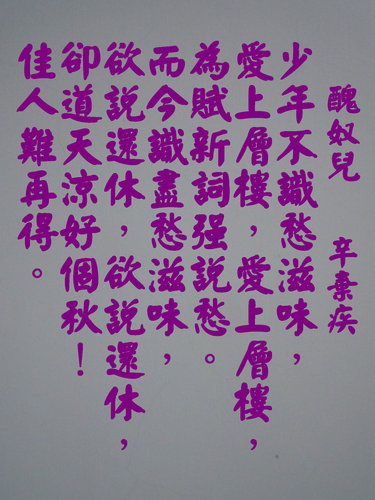 醜奴兒 辛棄疾
少年不識愁滋味，
愛上層樓，愛上層樓，
為賦新詞强說愁。
而今識盡愁滋味，
欲說還休，欲說還休，
卻道天涼好個秋！
佳人難再得。